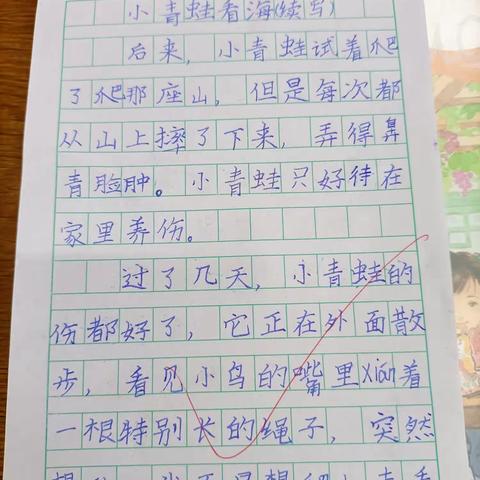 小青蛙看海(续写)
后来，小青蛙试着爬
了爬那座山，但是每次都
从山上摔了下来，弄得鼻
青脸肿。小青蛙只好待在
家里养伤。
过了几天，小青蛙的
伤都好了，它正在外面散
步，看见小鸟的嘴里xián着
一根特别长的绳子，突然